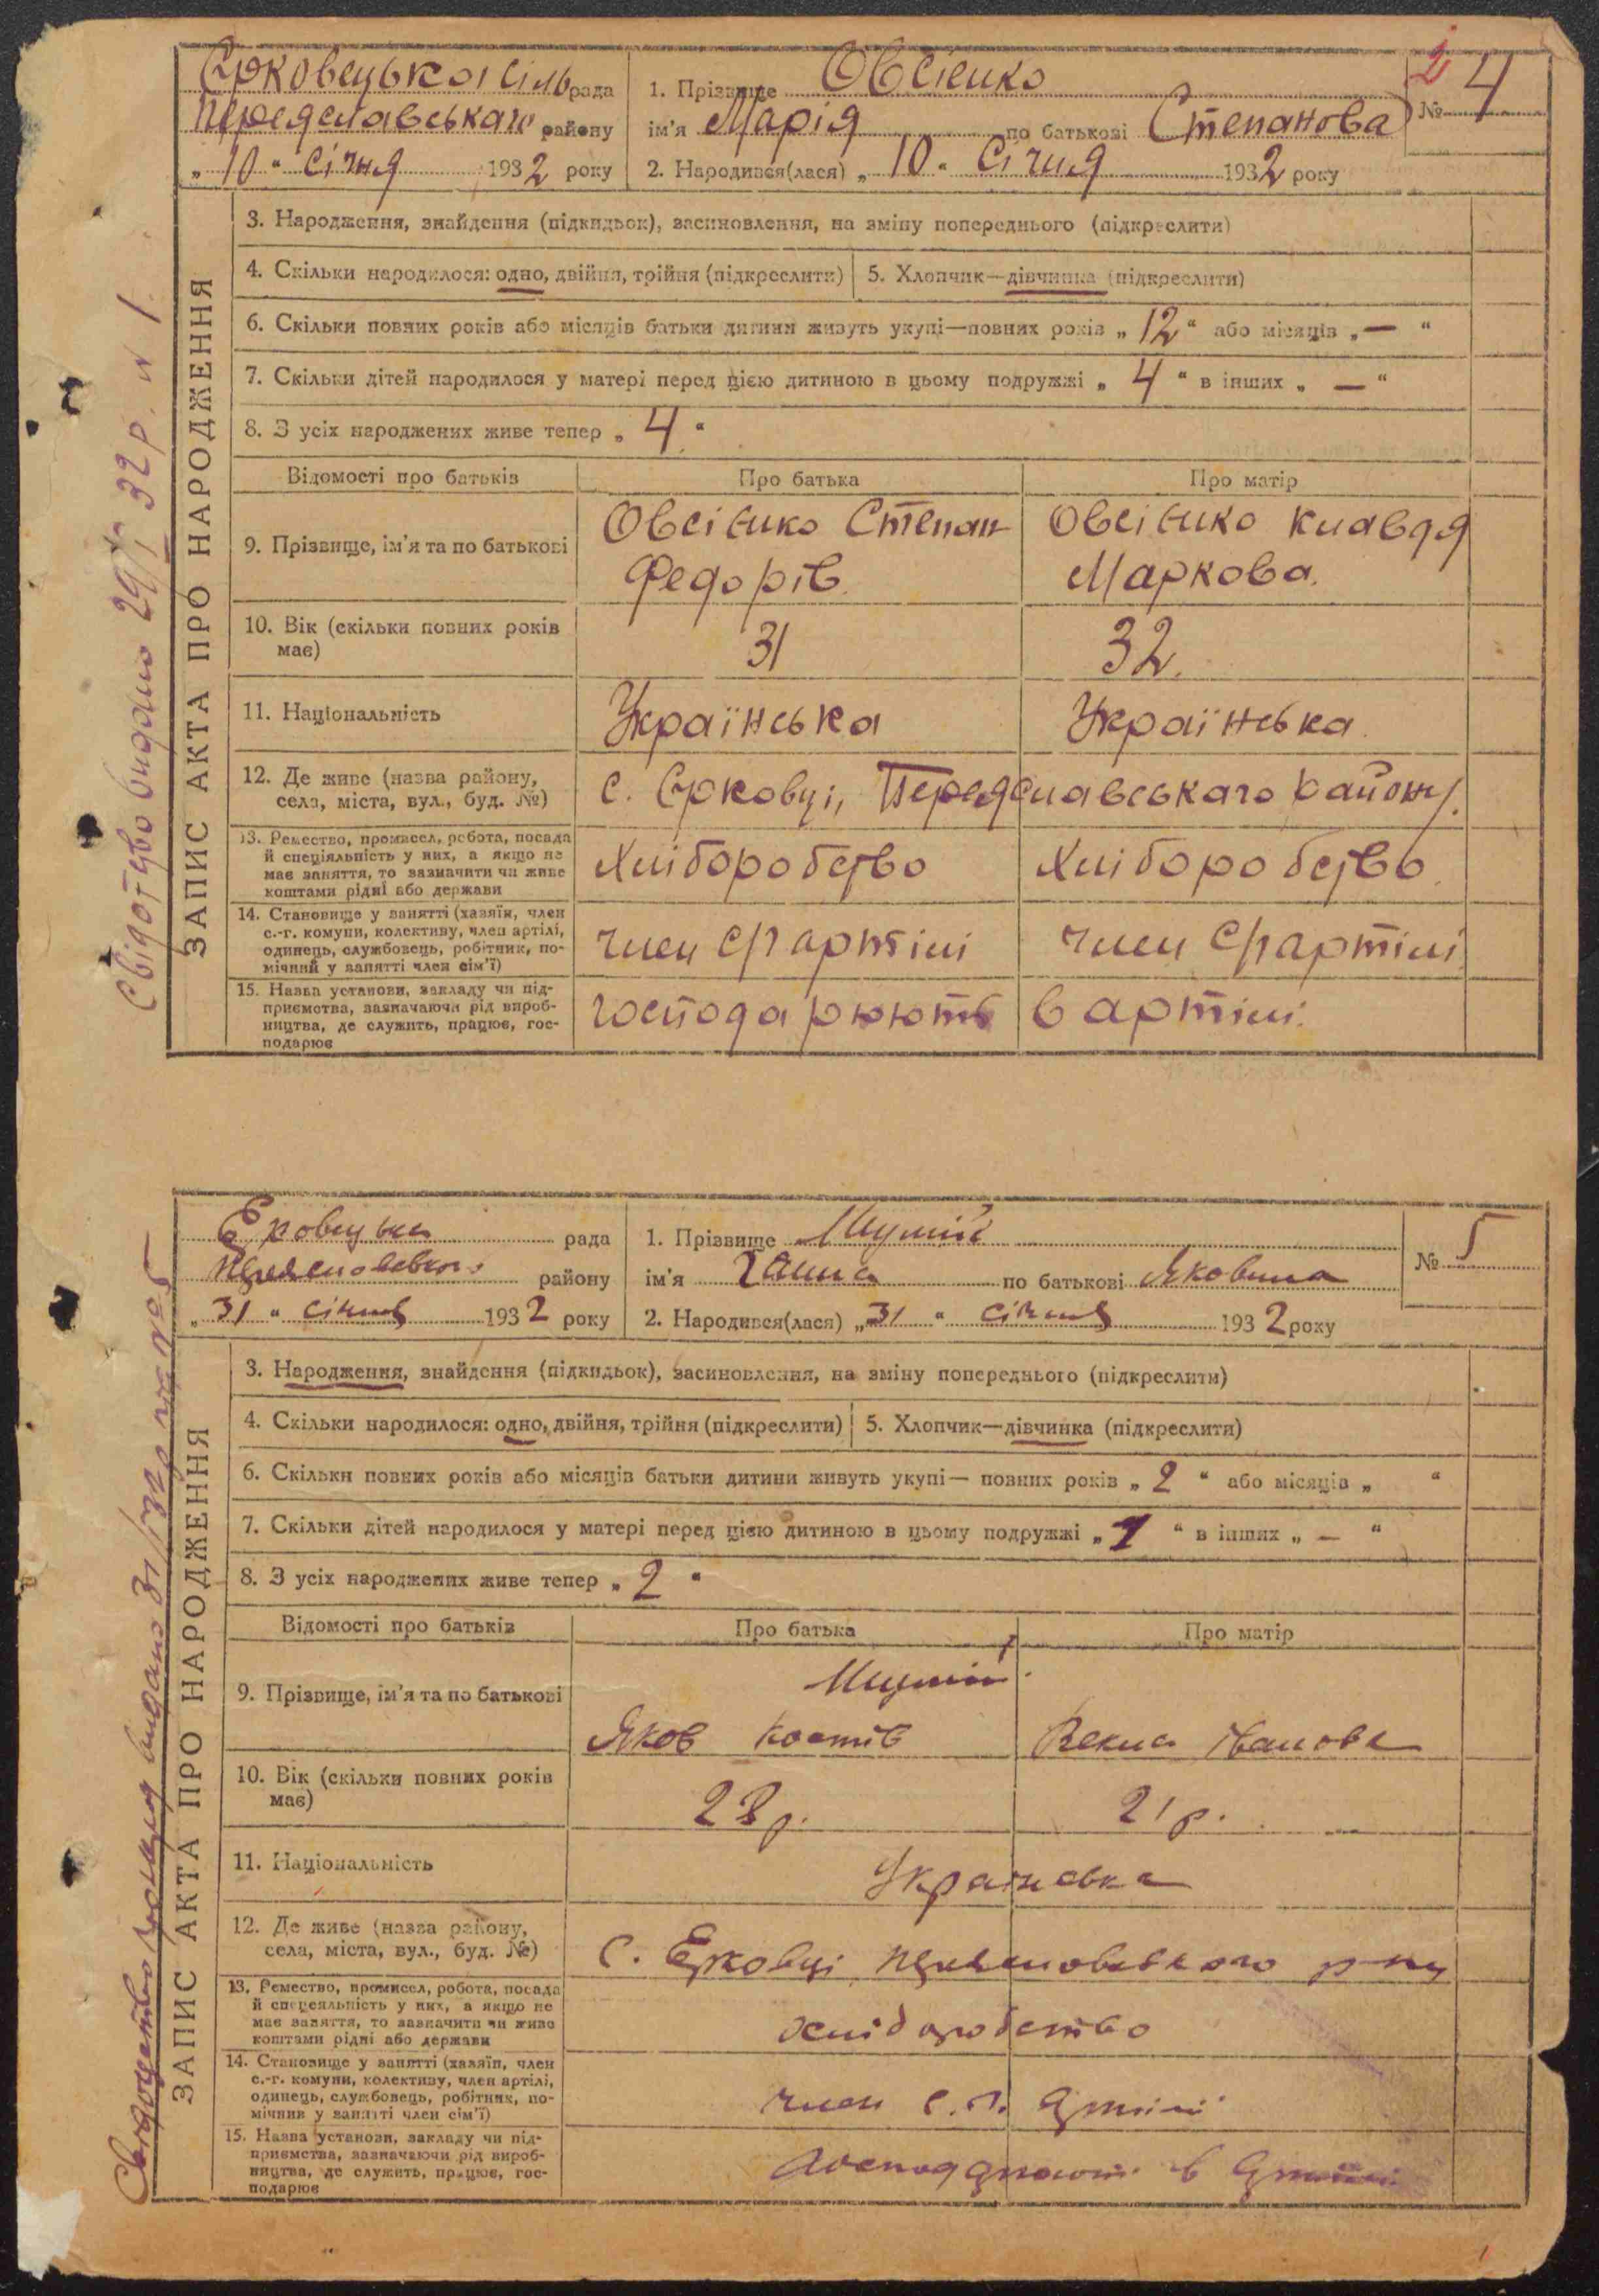 Єрковецької сільрада
Переяславського району
„10“ Січня 1932 року
1. Прізвище Овсієнко
ім'я Марія по батькові Степанова
2. Народився(лася) „10“ Січня 1932 року
№ 4
3. Народження, знайдення (підкидьок), засиновлення, на зміну попереднього (підкреслити)
4. Скільки народилося: одно, двійня, трійня (підкреслити)
5. Хлопчик—дівчинка (підкреслити)
6. Скільки повних років або місяців батьки дитини живуть укупі—повних років „12“ або місяців „—“
7. Скільки дітей народилося у матері перед цією дитиною в цьому подружжі „4“ в інших „—“
8. З усіх народжених живе тепер „4“
Відомості про батьків
Про батька
Про матір
9. Прізвище, ім'я та по батькові
Овсієнко Степан
Федорів.
Овсієнко Клавдя
Маркова.
10. Вік (скільки повних років
має)
31
32.
11. Національність
Українська
Українська.
12. Де живе (назва району,
села, міста, вул., буд. №)
с. Єрковці, Переяславського району.
13. Ремество, промисел, робота, посада
й спеціяльність у них, а якщо не
має заняття, то зазначити чи живе
коштами рідні або держави
Хліборобство
Хліборобство.
14. Становище у занятті (хазяїн, член
с.-г. комуни, колективу, член артілі,
одинець, службовець, робітник, по-
мічний у занятті член сім'ї)
член с/г артілі
член с/г артілі.
15. Назва установи, закладу чи під-
приємства, зазначаючи рід вироб-
ництва, де служить, працює, гос-
подарює
господарюють в артілі.
ЗАПИС АКТА ПРО НАРОДЖЕННЯ
Свідотство видано 29/I 32 р. № 1.
Єрковецька рада
Переяславського району
„31“ січня 1932 року
1. Прізвище
ім'я Ганна по батькові Яковина
2. Народився(лася) „31“ січня 1932 року
№ 5
3. Народження, знайдення (підкидьок), засиновлення, на зміну попереднього (підкреслити)
4. Скільки народилося: одно, двійня, трійня (підкреслити)
5. Хлопчик—дівчинка (підкреслити)
6. Скільки повних років або місяців батьки дитини живуть укупі— повних років „2“ або місяців „ “
7. Скільки дітей народилося у матері перед цією дитиною в цьому подружжі „1“ в інших „—“
8. З усіх народжених живе тепер „2“
Відомості про батьків
Про батька
Про матір
9. Прізвище, ім'я та по батькові
Яков Костів
Іванова
10. Вік (скільки повних років
має)
23 р.
21 р.
11. Національність
Українська
12. Де живе (назва району,
села, міста, вул., буд. №)
С. Єрковці Переяславського р-ну
13. Ремество, промисел, робота, посада
й спецеяльність у них, а якщо не
має заняття, то зазначити чи живе
коштами рідні або держави
хліборобство
14. Становище у занятті (хазяїн, член
с.-г. комуни, колективу, член артілі,
одинець, службовець, робітник, по-
мічник у занятті член сім'ї)
член с.г. Артілі
15. Назва установи, закладу чи під-
приємства, зазначаючи рід вироб-
ництва, де служить, працює, гос-
подарює
Господарюють в Артілі
ЗАПИС АКТА ПРО НАРОДЖЕННЯ
видано 31/I 32 р. № 5